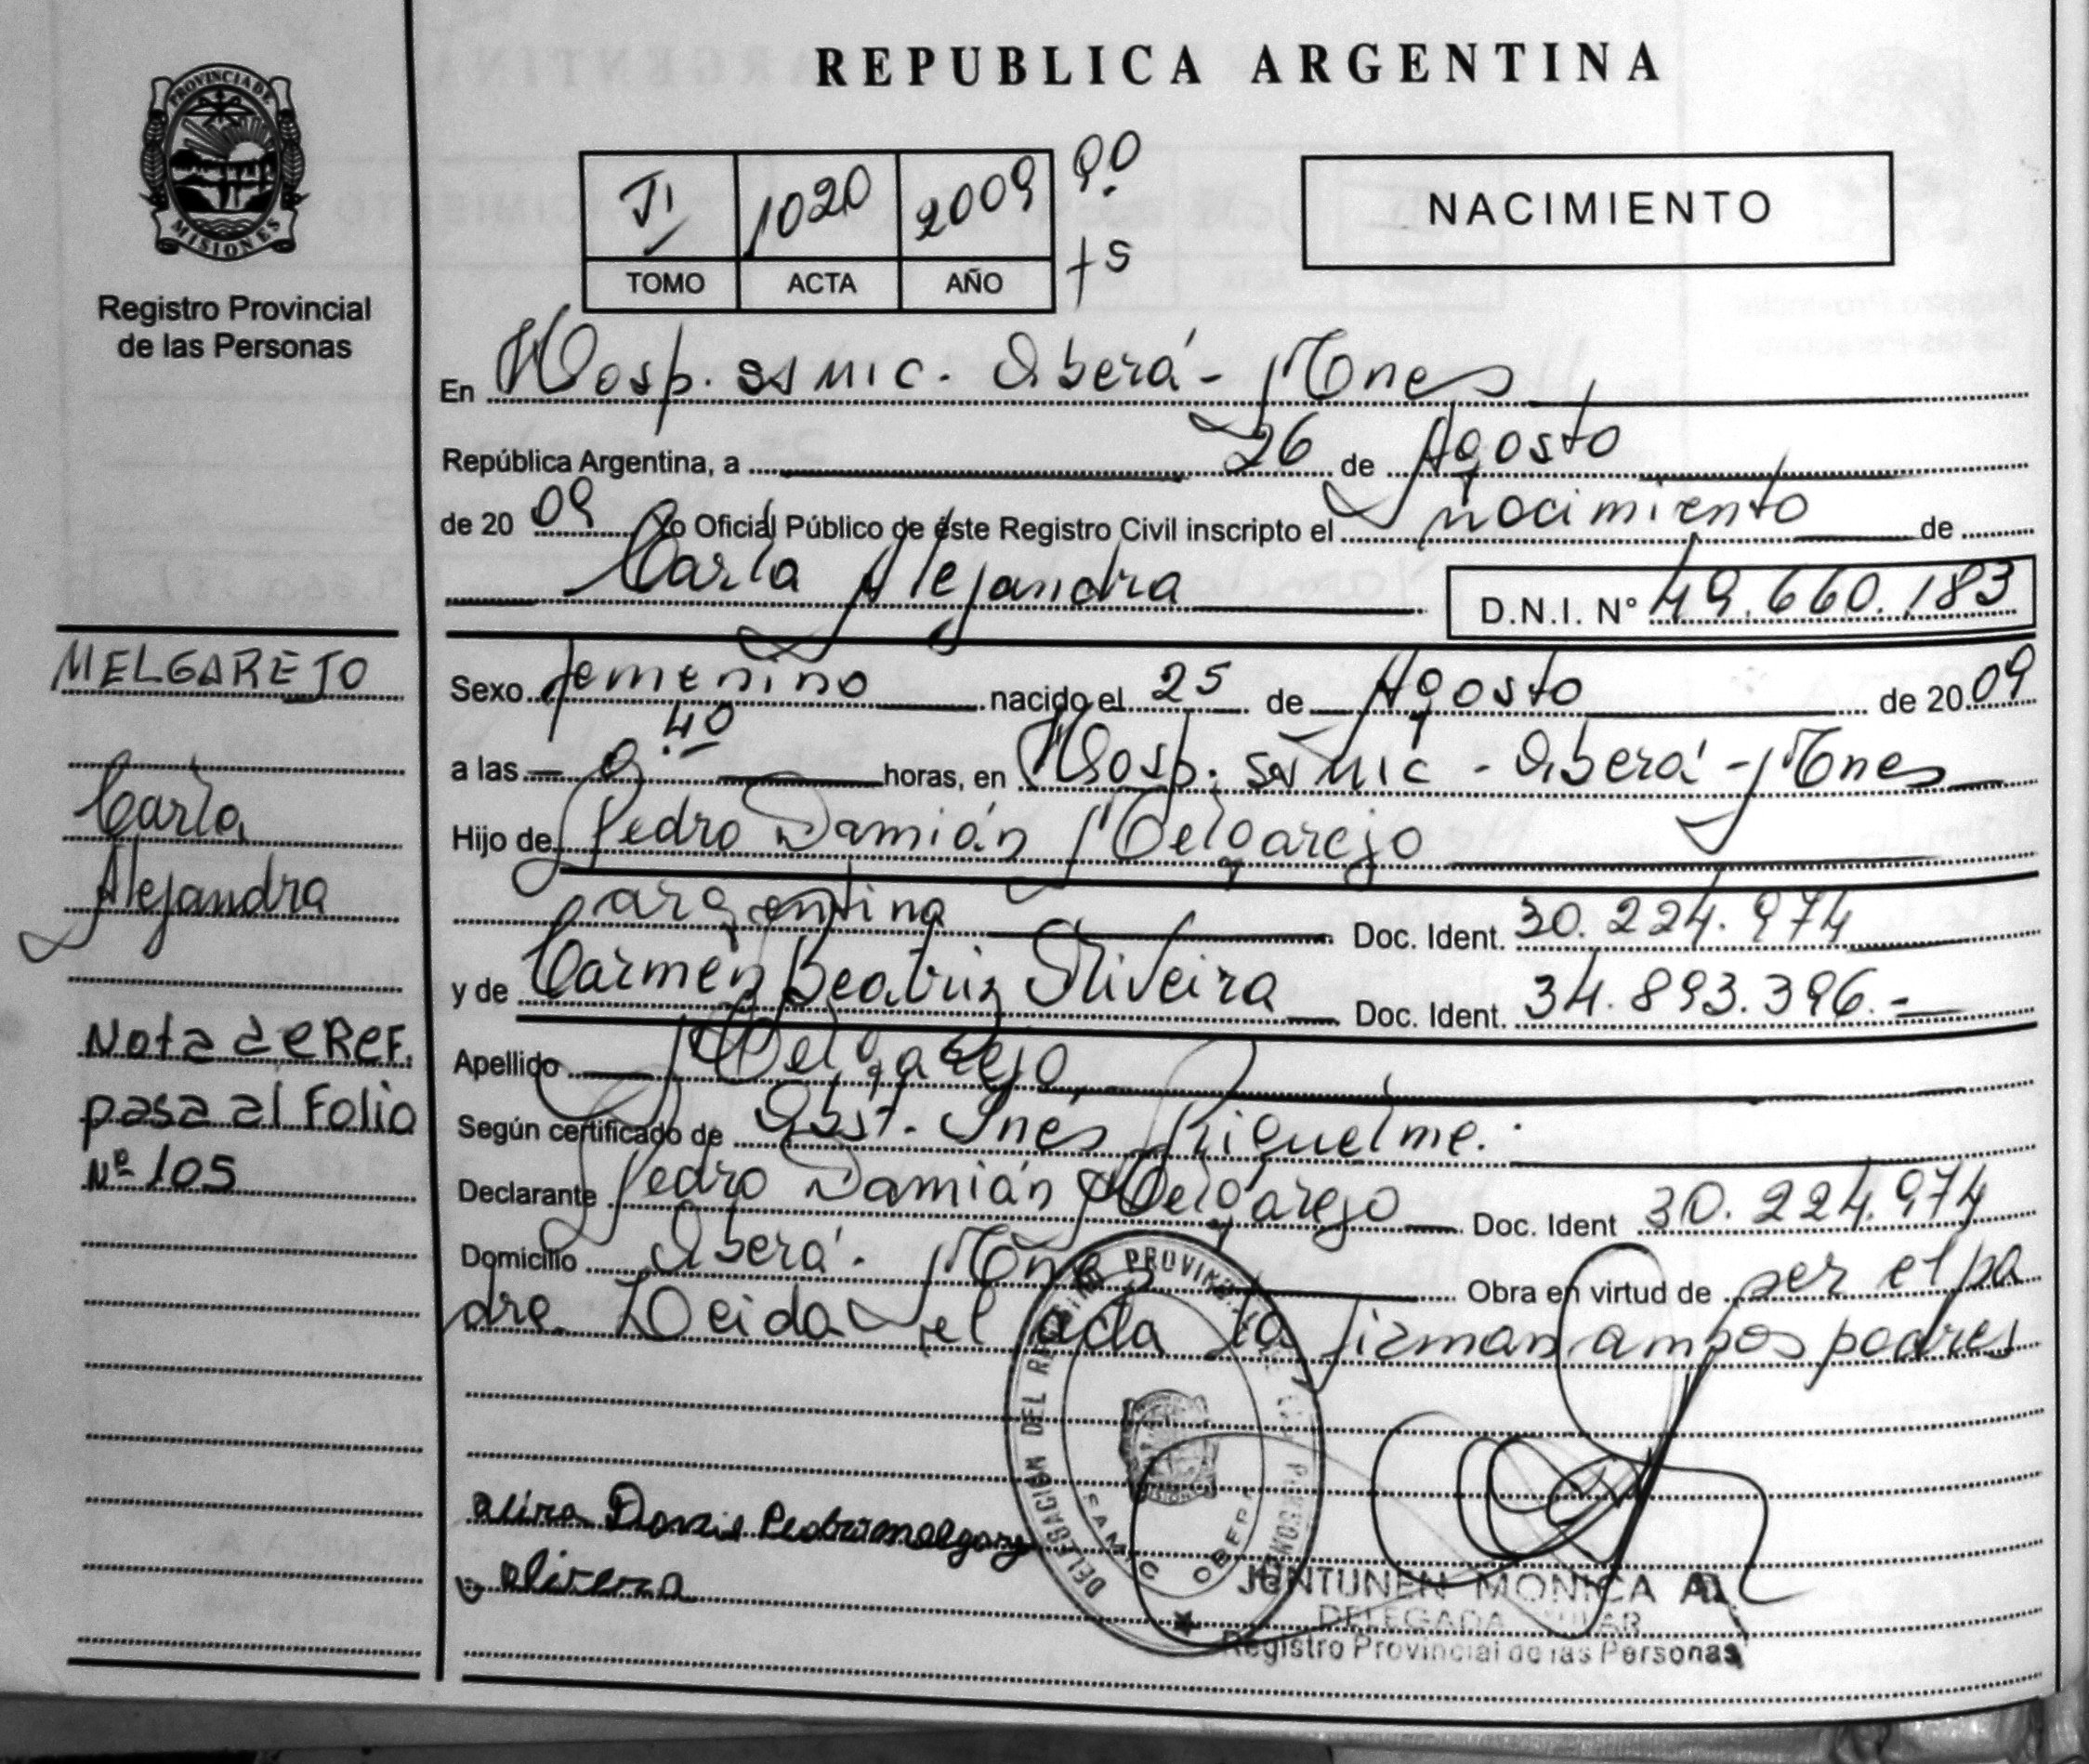 REPUBLICA ARGENTINA
PROVINCIA DE
MISIONES
Registro Provincial
de las Personas
VI 1020 2009
TOMO ACTA AÑO
NACIMIENTO
En Hosp. SAMIC. Oberá - Mnes
República Argentina, a 26 de Agosto
de 20 09 Yo Oficial Público de éste Registro Civil inscripto el nacimiento de
Carla Alejandra D.N.I. Nº 49.660.183
Sexo femenino nacido el 25 de Agosto de 20 09
a las 0.40 horas, en Hosp. SAMIC - Oberá - Mnes
Hijo de Pedro Damián Melgarejo
argentina Doc. Ident. 30.224.974
y de Carmen Beatriz Oliveira Doc. Ident. 34.893.396.-
Apellido Melgarejo
Según certificado de Obst. Inés Riquelme.
Declarante Pedro Damián Melgarejo Doc. Ident 30.224.974
Domicilio Oberá. Mnes Obra en virtud de ser el pa
dre. Leida el acta la firman ambos padres
MELGAREJO
Carla
Alejandra
Nota de Ref.
pasa al Folio
Nº 105
olivera
DELEGACIÓN DEL REGISTRO PROVINCIAL DE LAS PERSONAS
SAMIC OBERA
JUNTUNEN MONICA A.
DELEGADA TITULAR
Registro Provincial de las Personas